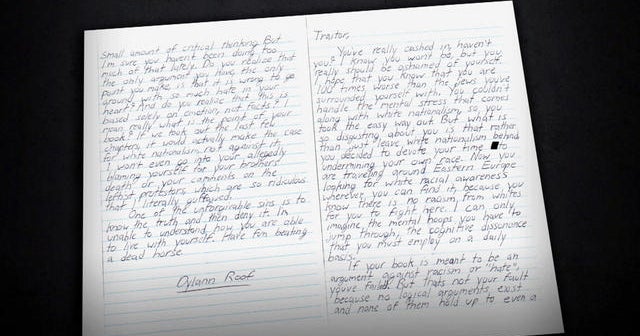 Small amount of critical thinking. But
I'm sure you haven't been doing too
much of that lately. Do you realize that
the only argument you have, the only
point you make, is that is wrong to go
around with so much hate in your
heart? And do you realize that this is
based solely on emotion, not facts? I
mean really what is the point of your
book? If you took out the last few
chapters, it would actually make the case
for white nationalism, not against it.
I won't even go into your allegedly
blaming yourself for your brothers'
death, or your comments on the
leftist protestors which are so ridiculous
that I literally guffawed.
One of the unforgivable sins is to
know the truth and then deny it. Im
unable to understand how you are able
to live with yourself. Have fun beating
a dead horse.
Dylann Roof
Traitor,
You've really cashed in haven't
you? I know you won't be but you
really should be ashamed of yourself.
I hope that you know that you are
100 times worse than the jews you've
surrounded yourself with. You couldn't
handle the mental stress that comes
along with white nationalism so you
took the easy way out. But what is
so disgusting about you is that rather
than just leave white nationalism behind
you decided to devote your time to
undermining your own race. Now you
are traveling around Eastern Europe
looking for white racial awareness
wherever you can find it, because you
know there is no racism from whites
for you to fight here. I can only
imagine, the mental hoops you have to
jump through, the cognitive dissonance
that you must employ on a daily
basis.
If your book is meant to be an
argument against racism or "hate",
you've failed. But thats not your fault
because no logical arguments exist
and none of them hold up to even a